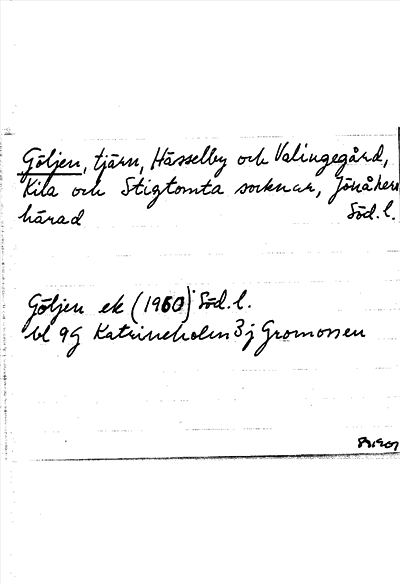 Göljen, tjärn, Hässelby och Valingegård,
Kila och Stigtomta socknar, Jönåkers
härad Söd.l.
Göljen ek (1960) Söd.l.
bl 9G Katrineholm 3j Gromossen